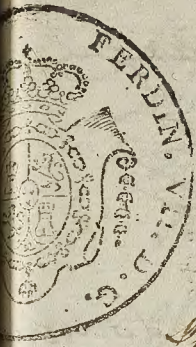 FERDIN. VII. D. G